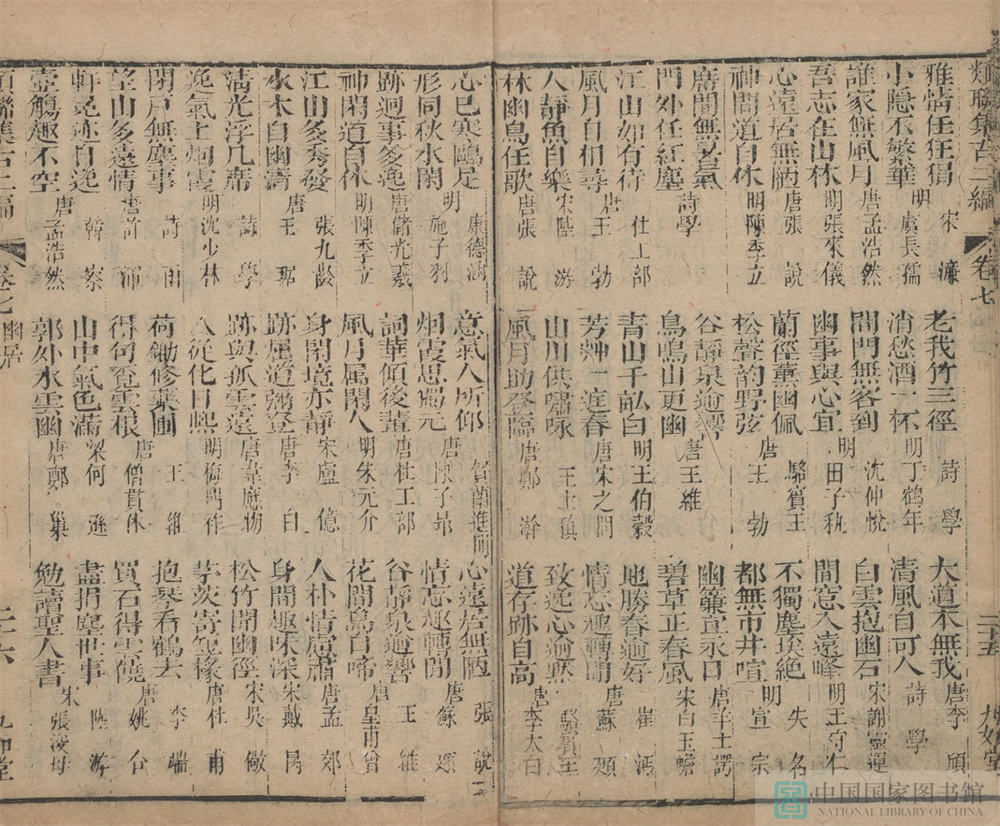 類聯集古二編 卷七 二十五 九如堂
雅情任狂猖 宋濂 老我竹三徑 詩學 大道本無我 唐李頎
小隱不繁華 明虞長孺 消愁酒一杯 明丁鶴年 清風自可人 詩學
誰家無風月 唐孟浩然 閭門無客到 沈仲悅 白雲抱幽石 宋謝靈運
吾志在山林 明張來儀 幽事與心宜 明田子秇 閒窓入遠峰 明王守仁
心遠居無陋 唐張說 蘭徑薰幽佩 駱賓王 不獨塵埃絕 失名
神閒道自休 明陳季立 松聲韵野弦 唐王勃 都無市井 明宣宗
席閒無暑氣 谷靜泉逾響 幽簟宜永日 唐
門外任紅塵 詩學 鳥鳴山更幽 唐王維 碧草正春風 宋白玉蟾
江山如有待 杜工部 青山千畝白 明王伯穀 地勝春逾好 崔沔
風月自相尋 唐王勃 芳艸一逕春 唐宋之問 情忘趣轉閒 唐蘇頲
人靜魚自樂 宋陸游 山川供嘯咏 王士禛 致逸心逾默 駱賓王
林幽鳥任歌 唐張說 風月助登臨 唐鄭澣 道存跡自高 唐李太白
心已寒鷗足 明康德涵 意氣人所仰 賀蘭進明 心遠居無陋 張說
形同秋水閒 施子列 烟霞思歸元 唐陳子昂 情忘趣轉閒 唐蘇頲
跡迥事多逸 唐儲光羲 詞華傾後輩 唐杜工部 谷靜泉逾響 王維
神閒道自休 明陳季立 風月属閒人 明朱元介 花閒鳥自啼 唐皇甫曾
江山多秀發 張九齡 身閒境亦靜 宋盧億 人朴情慮肅 唐孟郊
水木自幽清 唐王琚 跡屈道彌敦 唐李白 身閒趣味深 宋戴昺
清光浮几席 詩學 跡與孤雲遠 唐韋應物 松竹閒幽徑 宋吳儆
逸氣上烟霞 明沈少林 人從化日熙 明梅鼎祚 茅茨寄短椽 唐杜甫
閉戶無塵事 詩囿 荷鋤修藥圃 王維 抱琴看鶴去 李端
望山多遠情 唐許渾 得句覓雲根 唐僧貫休 買石得雲饒 唐姚合
軒冕迹自逸 韓察 山中氣色滿 梁何遜 盡捐塵世事 陸游
壺觴趣不空 唐孟浩然 郭外水雲幽 唐鄭巢 勉讀聖人書 宋張凌母
類聯集古二編 卷七 幽居 二十六 九如堂
中国国家图书馆
NATIONAL LIBRARY OF CHINA